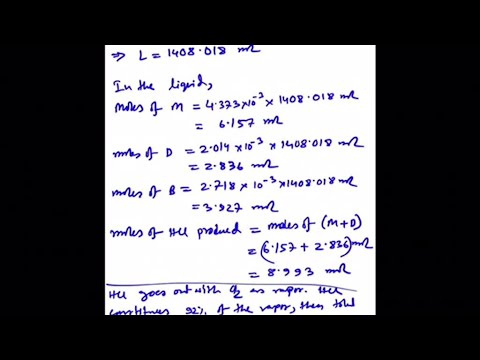 ⇒ L = 1408.018 mol
In the liquid,
moles of M = 4.373×10⁻³ × 1408.018 mol
= 6.157 mol
moles of D = 2.014×10⁻³ × 1408.018 mol
= 2.836 mol
moles of B = 2.718 × 10⁻³ × 1408.018 mol
= 3.927 mol
moles of HCl produced = moles of (M+D)
= (6.157 + 2.836) mol
= 8.993 mol
HCl goes out with Cl₂ as vapor. HCl
constitutes 92% of the vapor, then total